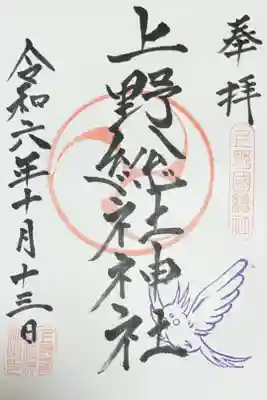 奉拝
上野國總社
上野総社神社
令和六年十月十三日